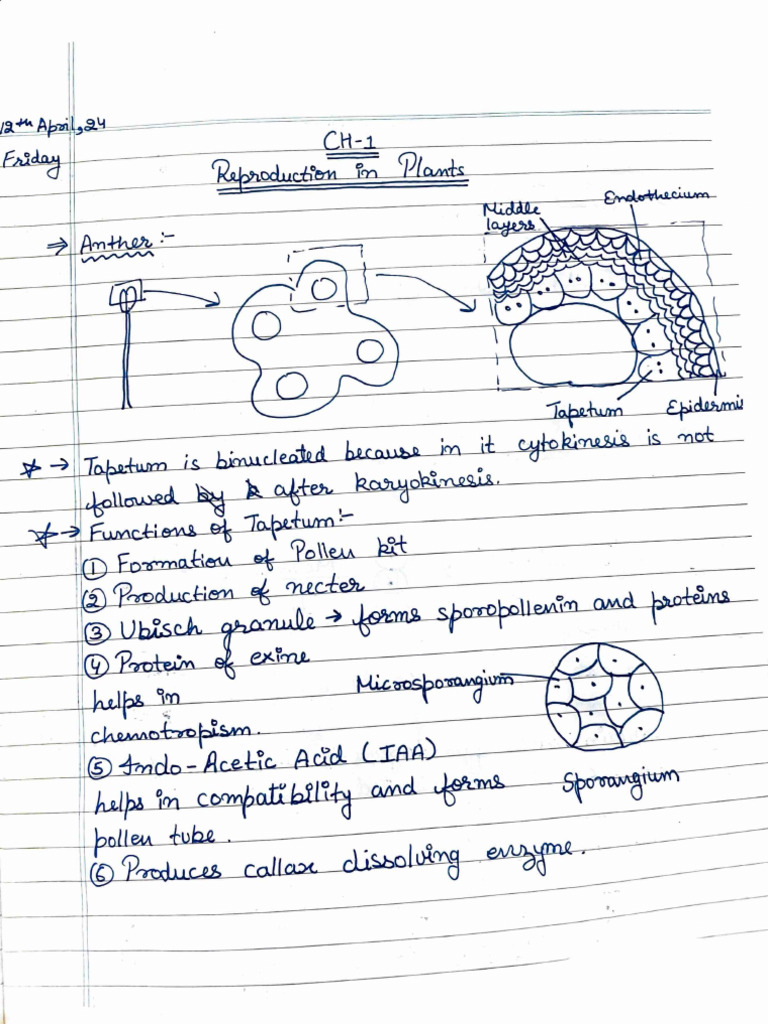 12th April, 24
Friday
CH-1
Reproduction in Plants
⇒ Anther :-
Middle
layers
Endothecium
Tapetum
Epidermis
☆ → Tapetum is binucleated because in it cytokinesis is not
followed by after karyokinesis.
☆ → Functions of Tapetum:-
① Formation of Pollen kit
② Production of necter
③ Ubisch granule → forms sporopollenin and proteins
④ Protein of exine
helps in
chemotropism.
Microsporangium
Sporangium
⑤ Indo-Acetic Acid (IAA)
helps in compatibility and forms
pollen tube.
⑥ Produces callase dissolving enzyme.